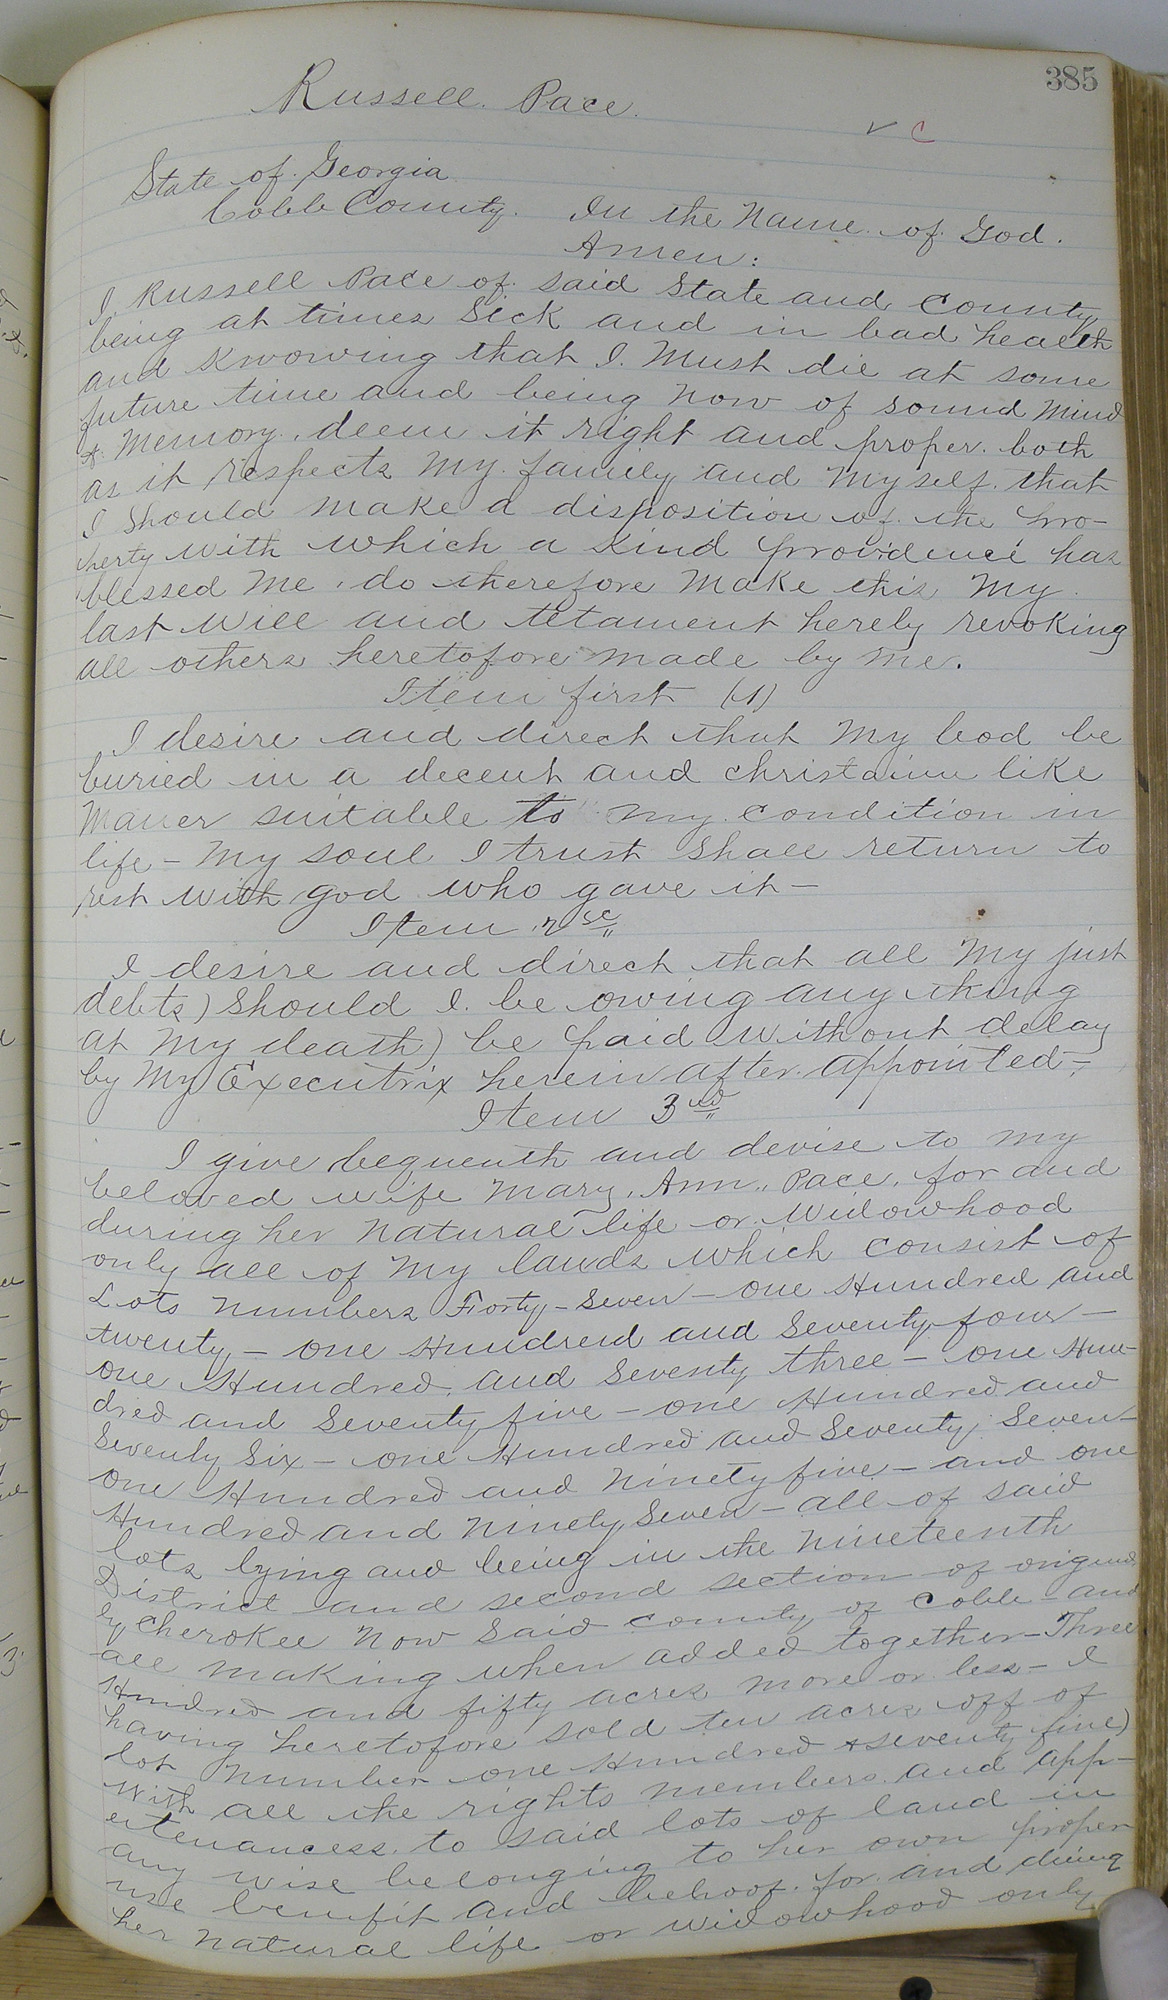 385
Russell. Pace.
✓ C
State of. Georgia
Cobb County. In the Name. of. God.
Amen:
I, Russell Pace of. said State and County
being at times Sick and in bad health
and Knowing that I. Must die at some
future time and being now of sound Mind
& Memory. deem it right and proper. both
as it respects My. family and Myself. that
I Should make a disposition of. the pro-
perty with which a Kind providence has
blessed Me. do therefore Make this My.
last Will and tetament hereby revoking
all others heretofore made by Me.
Item first (1)
I desire and direct that My bod be
buried in a decent and christainn like
Maner suitable to my condition in
life - My soul I trust Shall return to
rest with god who gave it -
Item 2
I desire and direct that all My just
debts) Should I. be owing any thing
at My death) be paid without delay
by My Executrix herein after appointed,-
Item 3rd
I give bequeath and devise to my
beloved wife Mary. Ann., Pace, for and
during her Natural life or Widowhood
only all of My lands which consist of
Lots numbers Forty-Seven - one Hundred and
twenty - one Hundred and Seventy four -
one Hundred, and Seventy three - one Hun-
dred and Seventy five - one Hundred and
Seventy Six - one Hundred and Seventy Seven -
one Hundred and Ninety five - and one
Hundred and Ninety Seven - all of said
lots lying and being in the Nineteenth
District and second section of original
ly Cherokee Now Said County of Cobb - and
all making when added together - Three
Hundred and fifty acres more or less - I
having heretofore sold ten acres off of
lot Number one Hundred & seventy five)
With all the rights members and app-
ertenancess. to said lots of land in
any wise belonging to her own proper
use benefit and behoof. for and during
her natural life or widowhood only